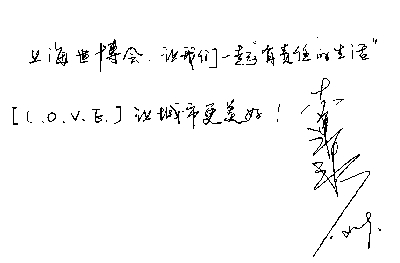 上海世博会，让我们一起"有责任的生活"
[L.O.V.E.] 让城市更美好！